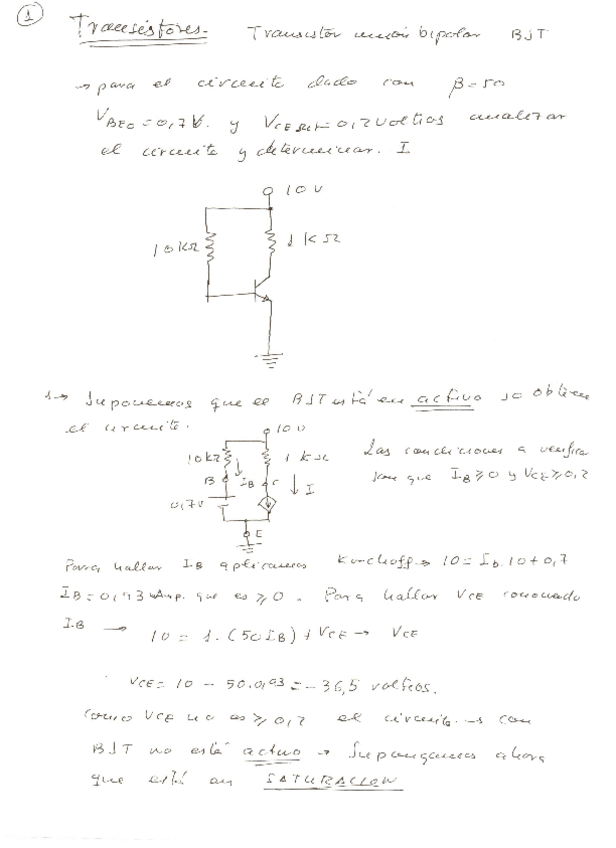 1
Transistores. Transistor unión bipolar BJT
→ para el circuito dado con β=50
VBEO=0,7V. y VCE sat=0,2 voltios analizar
el circuito y determinar. I
10 V
10KΩ 1KΩ
1→ Suponemos que el BJT está en activo se obtiene
el circuito.
10V
10KΩ 1KΩ Las condiciones a verificar
B IB C I son que IB≥0 y VCE≥0,2
0,7V
E
Para hallar IB aplicamos Kirchoff→ 10=Ib.10+0,7
IB=0,93 mAmp. que es ≥0. Para hallar VCE conociendo
IB → 10=1.(50IB)+VCE→ VCE
VCE=10-50.0,93=-36,5 voltios.
Como VCE no es ≥0,2 el circuito → con
BJT no está activo → Supongamos ahora
que está en SATURACION